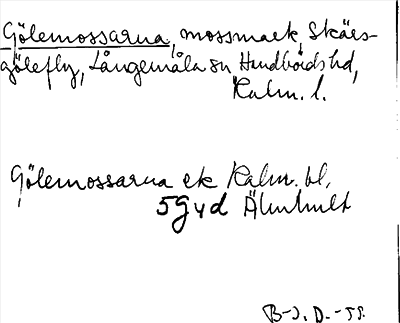 Gölemossarna, mossmark, Skärs-
gölefly, Långemåla sn Handbörds hd,
Kalm. l.
Gölemossarna ek Kalm. bl,
5G vd Älmhult
B-J. D. -55.